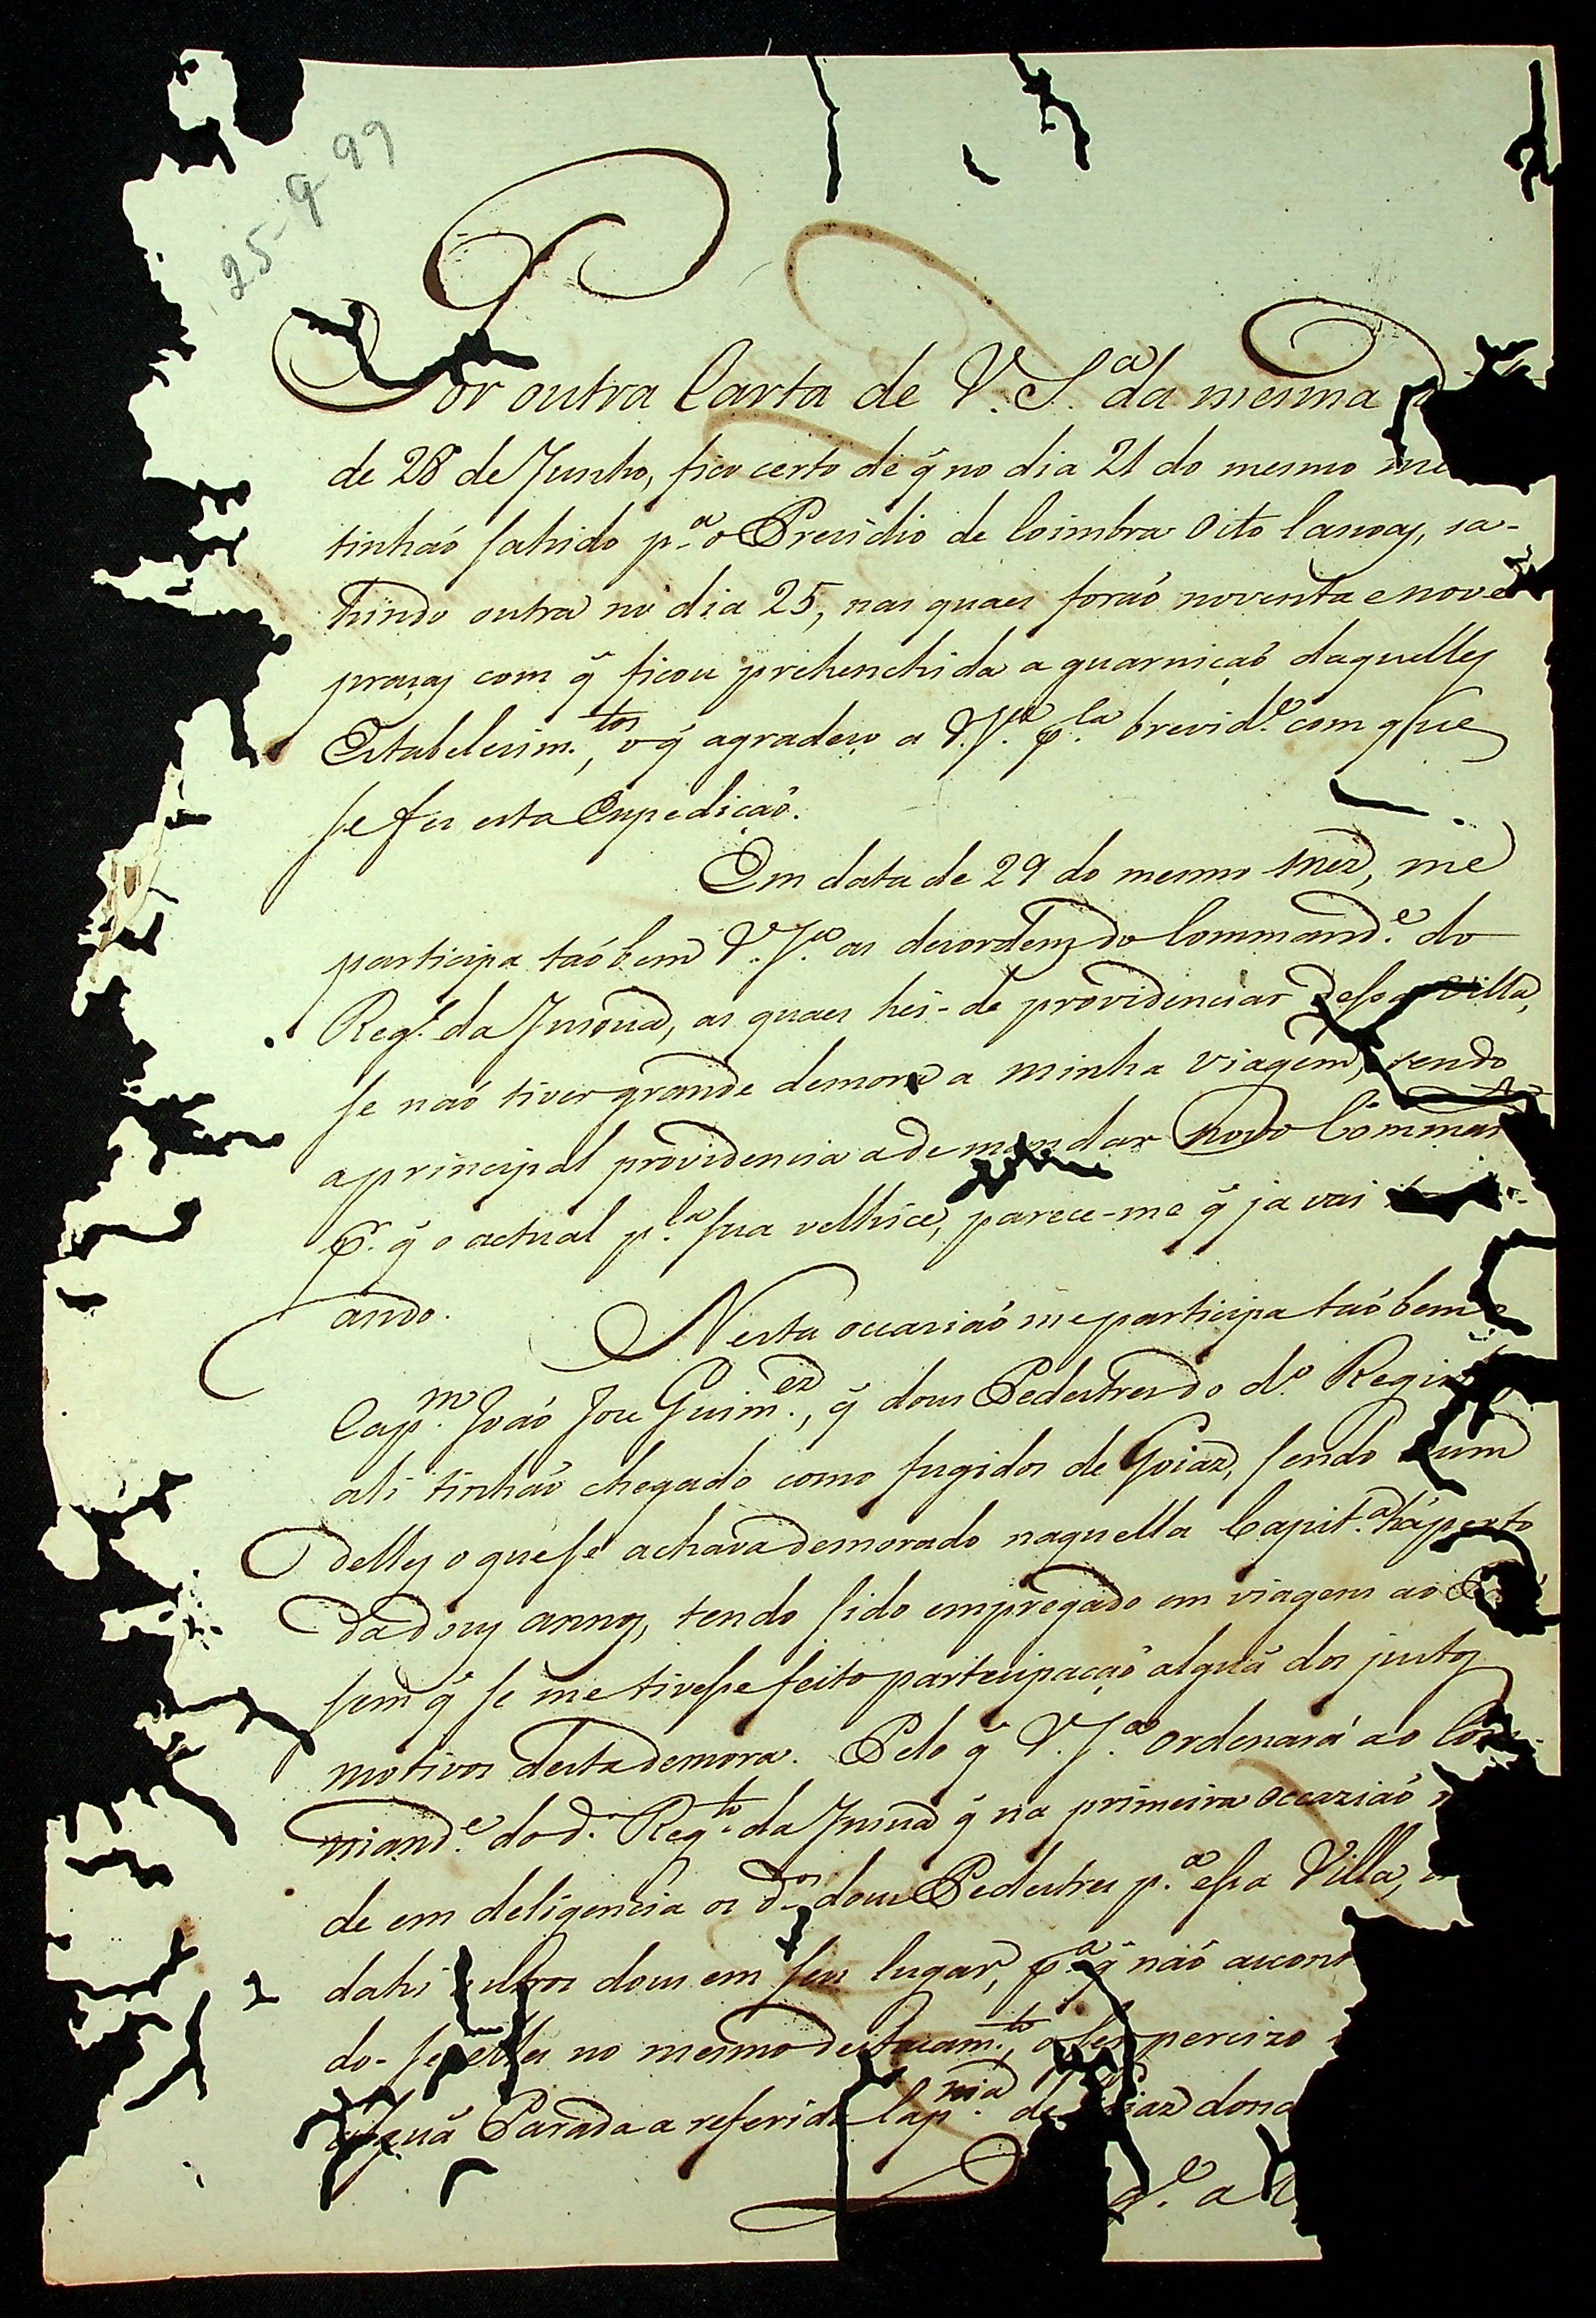 25-9-99
Por outra Carta de V. S.ª da mesma
de 28 de Junho, fico certo de q̃ no dia 21 do mesmo me
tinhaõ sahido p.ª o Prezidio de Coimbra oito Canoas, sa-
hindo outra no dia 25, nas quaes foraõ noventa e nove
praças com q̃ ficou prehenchida a guarniçaõ daquelles
Estabelecim.tos, o q̃ agradeço a V. S.ª p.la brevid.e com que
se fes esta Expediçaõ.
Em data de 29 do mesmo mez, me
participa taõbem V. S.ª as desordens do Command.e do
Reg.º da Insua, as quaes hei-de providenciar dessa Villa,
se naõ tiver grande demora a minha viagem, sendo
a principal providencia a de mandar novo Comman
P. q̃ o actual p.la sua velhice, parece-me q̃ ja vai
ando.
Nesta occasiaõ me participa taõbem o
Cap.m Joaõ Joze Guim.ez, q̃ dous Pedestres do d.º Regis
ali tinhaõ chegado como fugidos de Goiaz, sendo hum
delles o que se achava demorado naquella Capit.ª há perto
de dous annos, tendo sido empregado em viagens ao
sem q̃ se me tivesse feito partecipaçaõ algũa dos justos
motivos desta demora. Pelo q̃ V. S.ª ordenará ao Com-
mand.e do d.º Reg.to da Insua q̃ na primeira occaziaõ
de em deligencia os d.os dous Pedestres p.ª essa Villa,
dahi outros dous em seu lugar, p.ª q̃ naõ acont
do-se elles no mesmo destacam.to, o ser percizo
algũa Parada a referida Cap.nia de Goiaz dond
d.e a